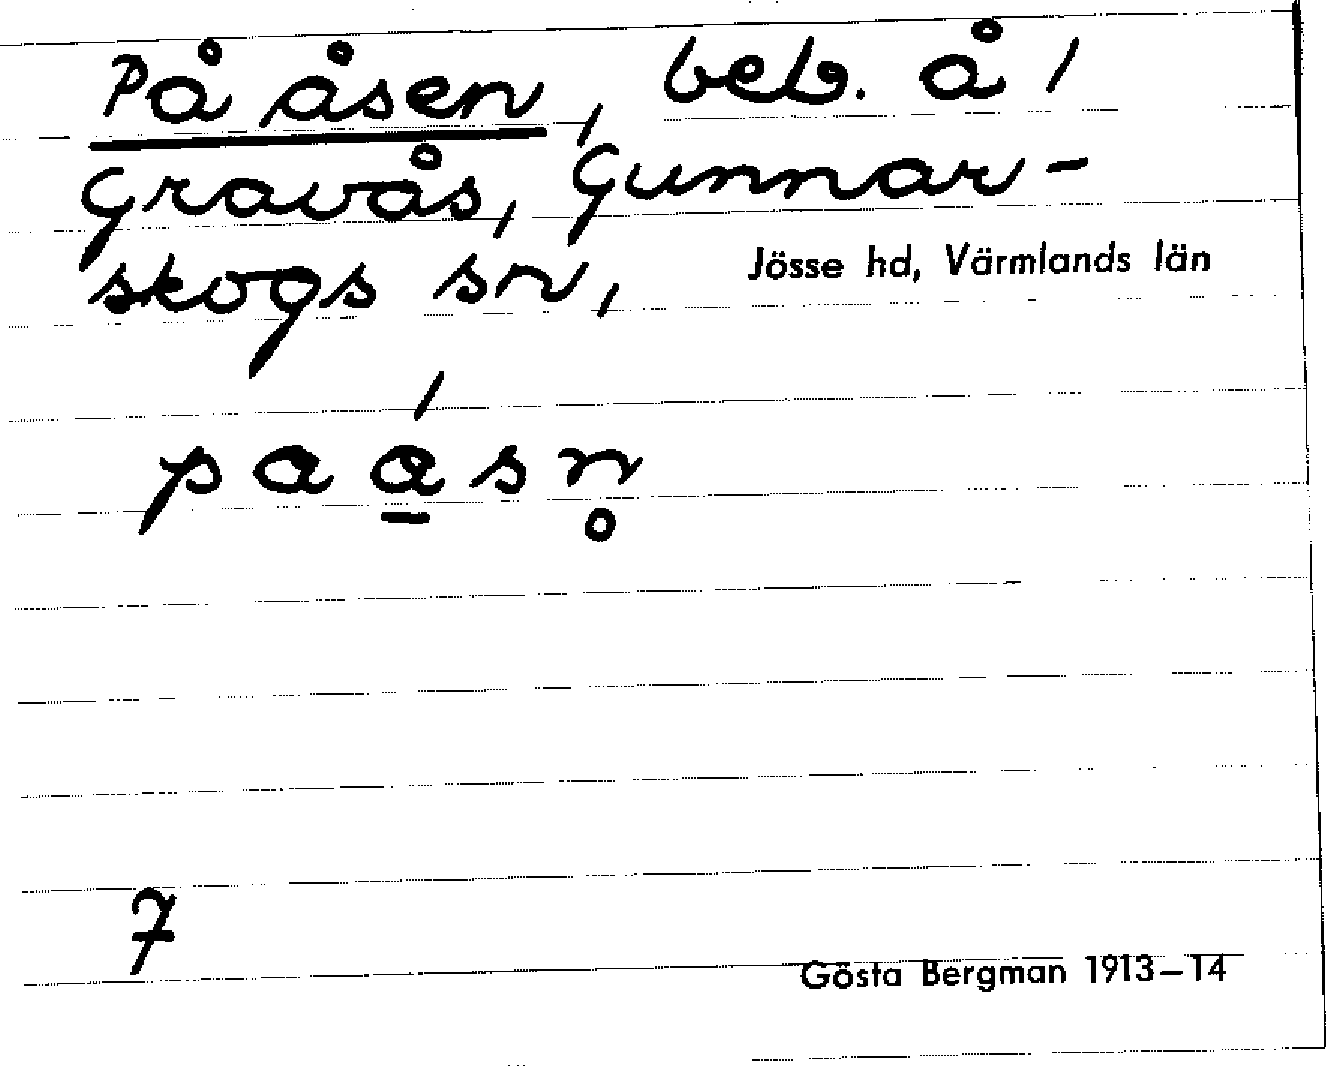 På åsen, beb. å 1/
Gravås, Gunnar-
skogs sn, Jösse hd, Värmlands län
pa á̱sn̥
7
Gösta Bergman 1913–14